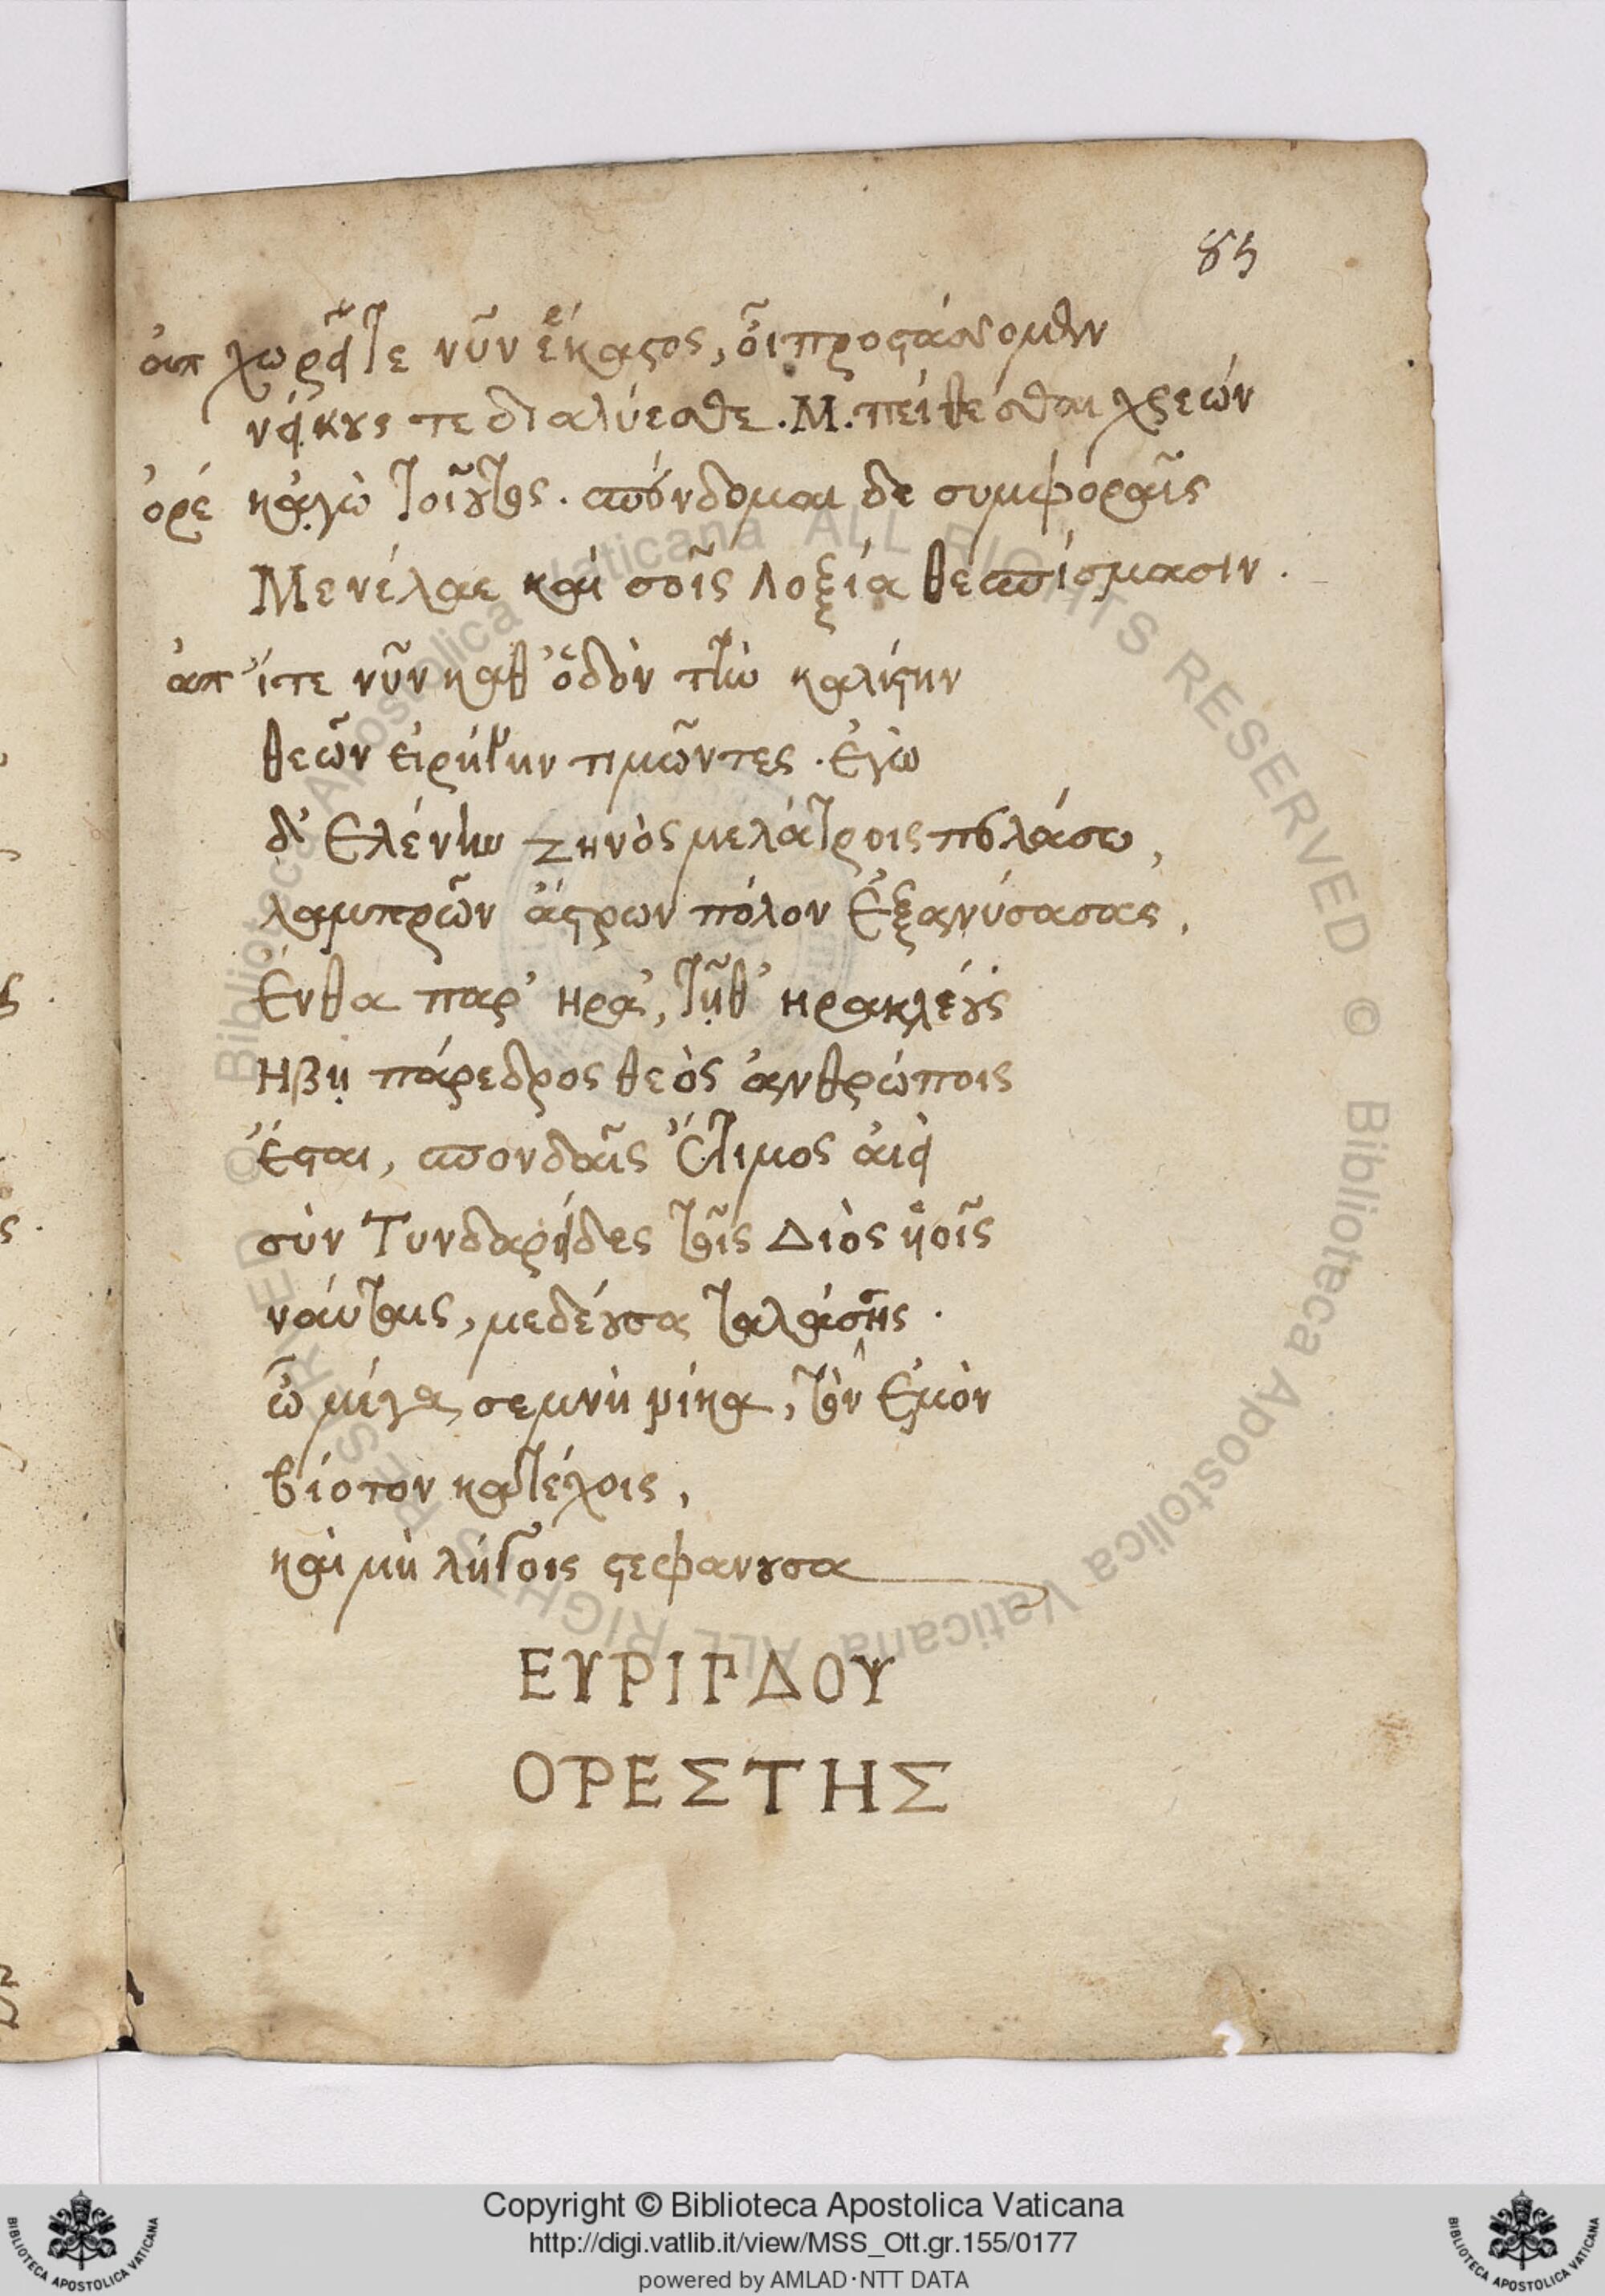 85
ἀπ χωρεῖτε νῦν ἕκαστος, οἷ προστάσσομεν
νείκους τε διαλύεσθε. Μ. πείθεσθαι χρεών
ὀρέ κἀγὼ τοιοῦτος. σπένδομαι δὲ συμφοραῖς
Μενέλαε καὶ σοῖς Λοξία θεσπίσμασιν.
ἀπ ἴτε νῦν καθ' ὁδὸν τὴν καλίστην
θεῶν εἰρήνην τιμῶντες. ἐγὼ
δ' Ελένην Ζηνὸς μελάτροις πελάσω,
λαμπρῶν ἄστρων πόλον ἐξανύσασας,
Ένθα παρ' Ηρα, τῇ θ' Ηρακλέους
Ηβῃ πάρεδρος θεὸς ἀνθρώποις
Έσται, σπονδαῖς Ἔντιμος ἀεὶ
σὺν Τυνδαρείδες τοῖς Διὸς ὑοῖς
ναύταις, μεδέουσα ταλάσσης.
ὦ μέγα σεμνὴ νίκα, τὸν Εμὸν
βίοτον κατέχοις,
καὶ μὴ λήγοις στεφανουσα
ΕΥΡΙΠΔΟΥ
ΟΡΕΣΤΗΣ
Biblioteca Apostolica Vaticana ALL RIGHTS RESERVED © Biblioteca Apostolica Vaticana ALL RIGHTS RESERVED ©
Copyright © Biblioteca Apostolica Vaticana
http://digi.vatlib.it/view/MSS_Ott.gr.155/0177
powered by AMLAD·NTT DATA
BIBLIOTECA APOSTOLICA VATICANA
BIBLIOTECA APOSTOLICA VATICANA